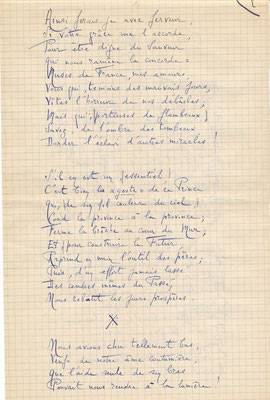 Ainsi ferais-je avec ferveur,
Si votre grâce me l'accorde,
Pour être digne du Sauveur
Qui nous ramène la concorde :
Muses de France, mes amours,
Vous qui, témoins des mauvais jours,
Vîtes l'horreur de nos débâcles,
Mais qui, porteuses de flambeaux,
Savez, de l'ombre des tombeaux
Darder l'éclair d'autres miracles !
S'il en est un d'essentiel !
C'est bien la geste de ce Prince
Qui, de son fil couleur de ciel,
Coud la province à la province ;
Ferme la brèche au cœur du Mur,
Et, pour construire le Futur
Reprend en main l'outil des pères,
Puis, d'un effort jamais lassé
Des cendres mêmes du Passé,
Nous refait les jours prospères.
X
Nous avions chu tellement bas,
Veufs de notre âme coutumière,
Que l'aide seule de son bras
Pouvait nous rendre à la lumière !